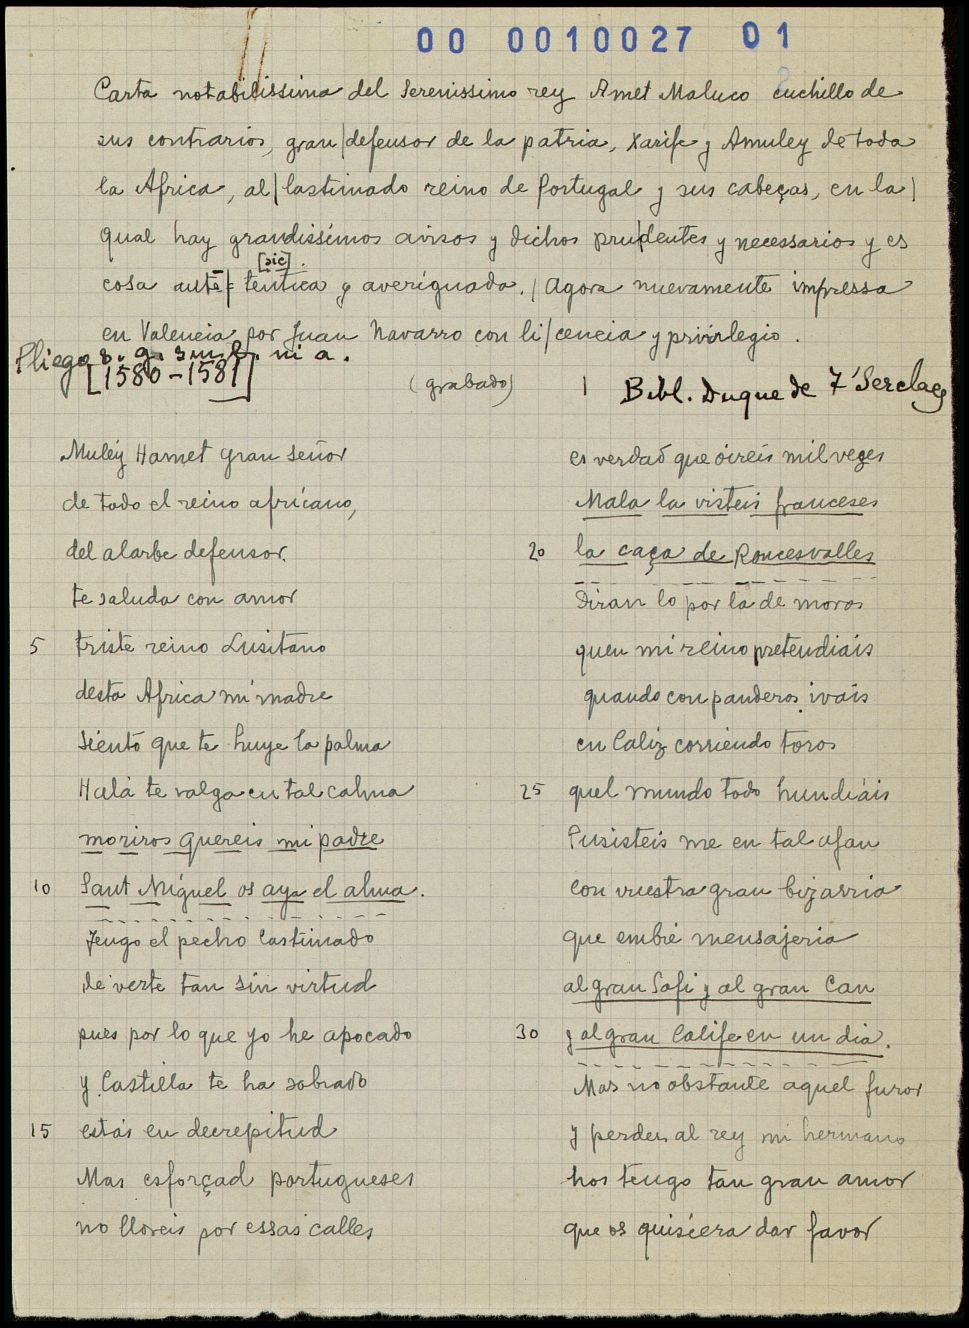 00 0010027 01
Carta notabilissima del Serenissimo rey Amet Maluco cuchillo de
sus contrarios, gran|defensor de la patria, Xarife y Amuley de toda
la Africa, al|lastimado reino de Portugal y sus cabeças, en la|
qual hay grandissimos avisos y dichos pru|dentes y necessarios y es
[sic].
cosa autē|tentica y averiguada.| Agora nuevamente impressa
en Valencia por Juan Navarro con li|cencia y privilegio.
Pliego s. g. s m l. ni a.
[1580-1581]
(grabado)
| Bibl. Duque de T'Serclaes
Muley Hamet gran señor
de todo el reino africano,
del alarbe defensor
te saluda con amor
5 triste reino Lusitano
desta Africa mi madre
siento que te huye la palma
Halá te valga en tal calma
moriros quereis mi padre
10 Sant Miguel os aya el alma.
Tengo el pecho lastimado
de verte tan sin virtud
pues por lo que yo he apocado
y Castilla te ha sobrado
15 estás en decrepitud
Mas esforçad portugueses
no lloreis por essas calles
es verdad que oireis mil veçes
Mala la visteis franceses
20 la caça de Roncesvalles
Diran lo por la de moros
quen mi reino pretendiais
quando con panderos ivais
en Caliz corriendo toros
25 quel mundo todo hundiais
Pusisteis me en tal afan
con vuestra gran bizarria
que embié mensajeria
al gran Sofi y al gran Can
30 y al gran Calife en un dia.
Mas no obstante aquel furor
y perder al rey mi hermano
hos tengo tan gran amor
que os quisiera dar favor